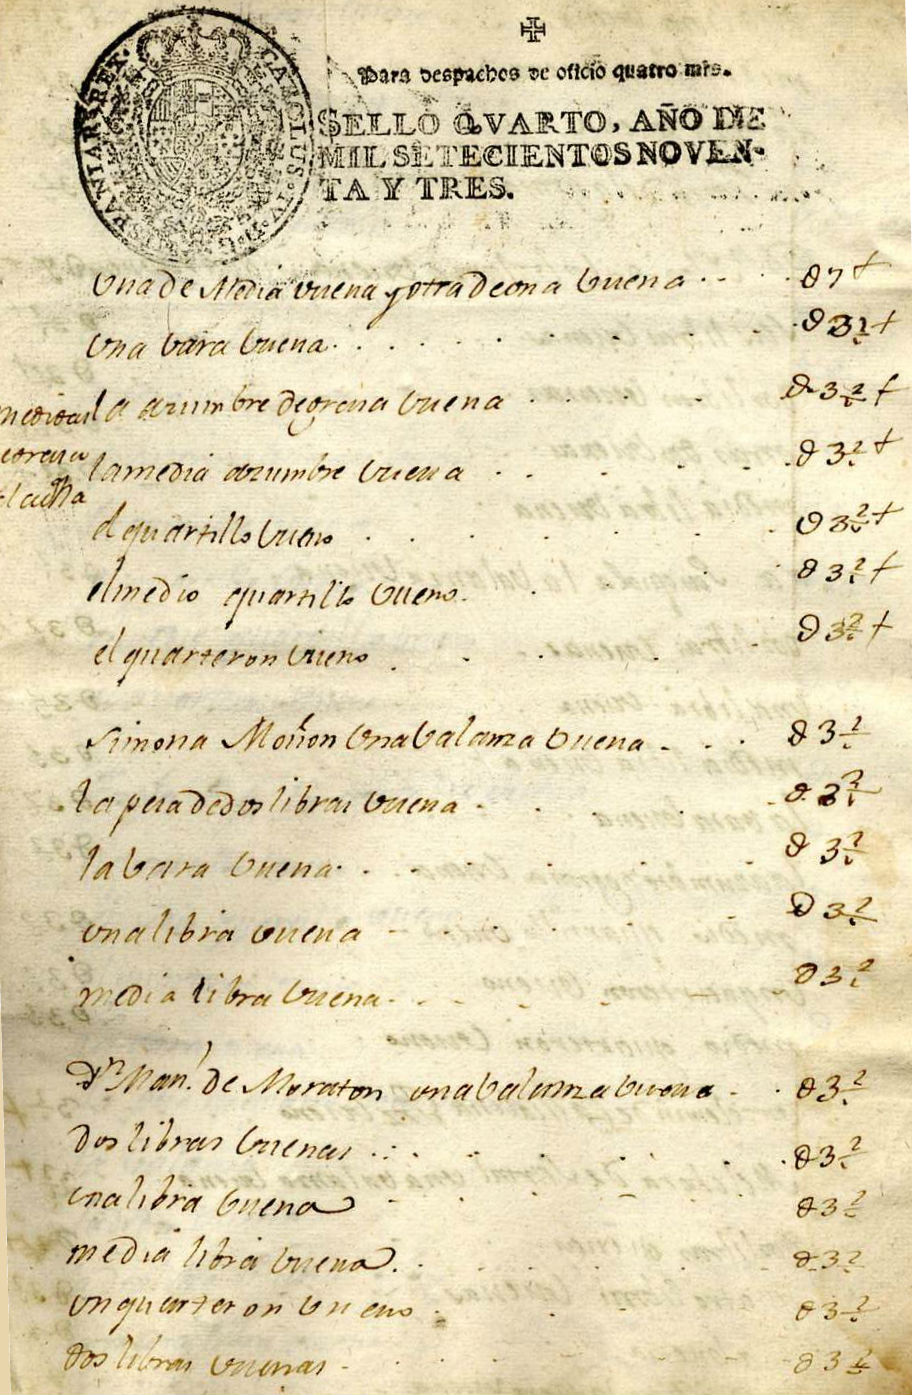 CAROLUS IV D. G. HISPANIAR REX
Para despachos de oficio quatro mrs.
SELLO QVARTO, AÑO DE
MIL SETECIENTOS NOVEN-
TA Y TRES.
Una de Media buena y otra de ona buena . . . . 7 +
Una bara buena . . . . . . . . 3½ +
la azumbre de grena buena . . . . . 3 2/ +
medidas
la media azumbre buena . . . . . 3 2/ +
el quartillo bueno . . . . . . . 3 2/ +
el medio quartillo bueno . . . . . 3 2/ +
el quarteron bueno . . . . . . 3 2/ +
Simona Moñon una balanza buena . . . 3 2/
la pesa de dos libras buena . . . 3 2/
la bara buena . . . . . . . 3 2/
una libra buena . . . . . . 3 2/
media libra buena . . . . . . 3 2/
Dn Man.l de Moraton una balanza buena . . 3 2/
dos libras buenas . . . . . . 3 2/
una libra buena . . . . . . 3 2/
media libra buena . . . . . . 3 2/
un quarteron bueno . . . . . . 3 2/
dos libras buenas . . . . . . 3 2/